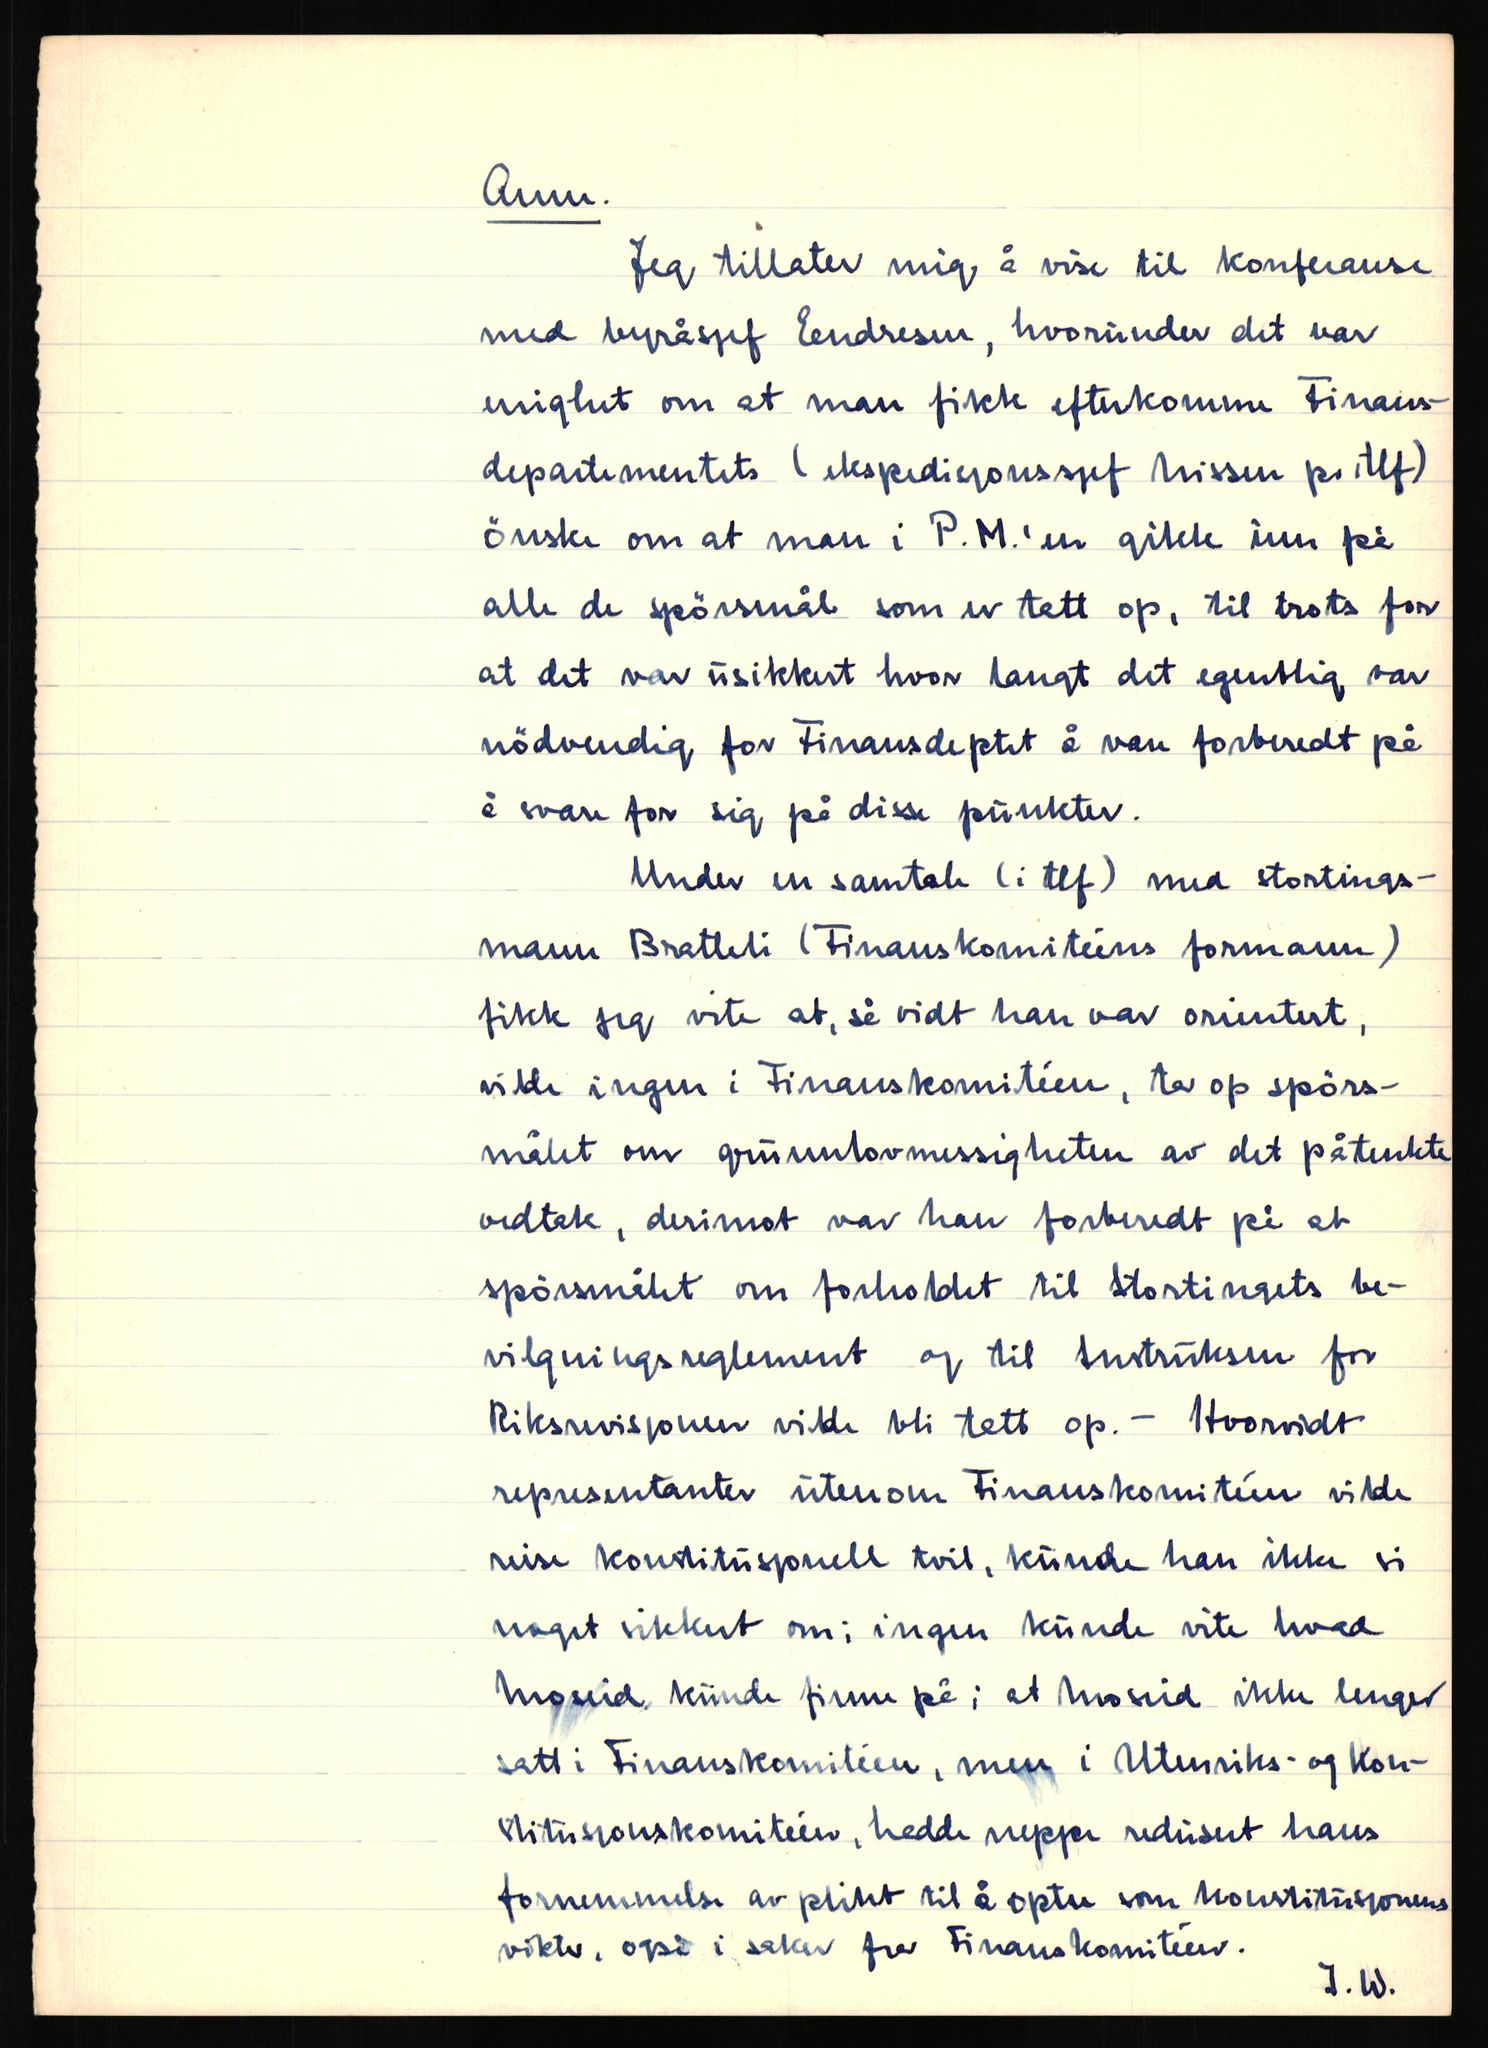 Anm.
Jeg tillater mig å vise til konferanse
med byråsjef Eendresen, hvorunder det var
enighet om at man fikk efterkomme Finans-
departementets (ekspedisjonssjef Nissen pr. tlf)
önske om at man i P.M.'en gikk inn på
alle de spörsmål som er tatt op, til trots for
at det var usikkert hvor langt det egentlig var
nödvendig for Finansdeptet å være forberedt på
å svare for sig på disse punkter.
Under en samtale (i tlf) med stortings-
mann Bratteli (Finanskomitéens formann)
fikk jeg vite at, så vidt han var orientert,
vilde ingen i Finanskomitéen, ta op spörs-
målet om grunnlovmessigheten av det påtenkte
vedtak, derimot var han forberedt på at
spörsmålet om forholdet til Stortingets be-
vilgningsreglement og til Instruksen for
Riksrevisjonen vilde bli tatt op. - Hvorvidt
representanter utenom Finanskomitéen vilde
reise konstitusjonell tvil, kunde han ikke si
noget sikkert om; ingen kunde vite hvad
Moseid kunde finne på; at Moseid ikke lenger
satt i Finanskomitéen, men i Utenriks- og Kon-
stitusjonskomitéen, hadde neppe redusert hans
fornemmelse av plikt til å optre som konstitusjonens
vikter, også i saker fra Finanskomitéen.
J.W.